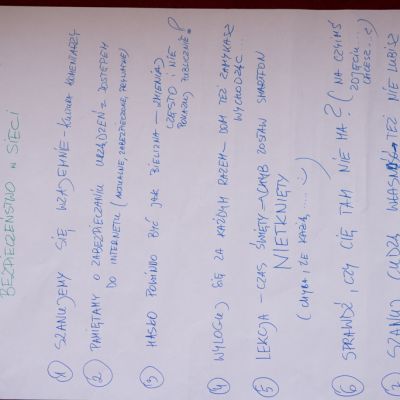 BEZPIECZEŃSTWO W SIECI
① SZANUJEMY SIĘ WZAJEMNIE - KULTURA KOMENTARZY
② PAMIĘTAMY O ZABEZPIECZANIU URZĄDZEŃ Z DOSTĘPEM
DO INTERNETU (AKTUALNE, ZABEZPIECZONE, PRYWATNE)
③ HASŁO POWINNO BYĆ JAK BIELIZNA - ZMIENIAJ
CZĘSTO I NIE
POKAZUJ PUBLICZNIE!
④ WYLOGUJ SIĘ ZA KAŻDYM RAZEM - DOM TEŻ ZAMYKASZ
WYCHODZĄC...
⑤ LEKCJA - CZAS ŚWIĘTY → ZOSTAW SMARTFON
NIETKNIĘTY
(CHYBA, ŻE KAŻĄ.... :)
⑥ SPRAWDŹ, CZY CIĘ TAM NIE MA? (NA CZYIMŚ
ZDJĘCIU...
CHCESZ...?)
7 SZANUJ CUDZĄ WŁASNOŚĆ TEŻ NIE LUBISZ